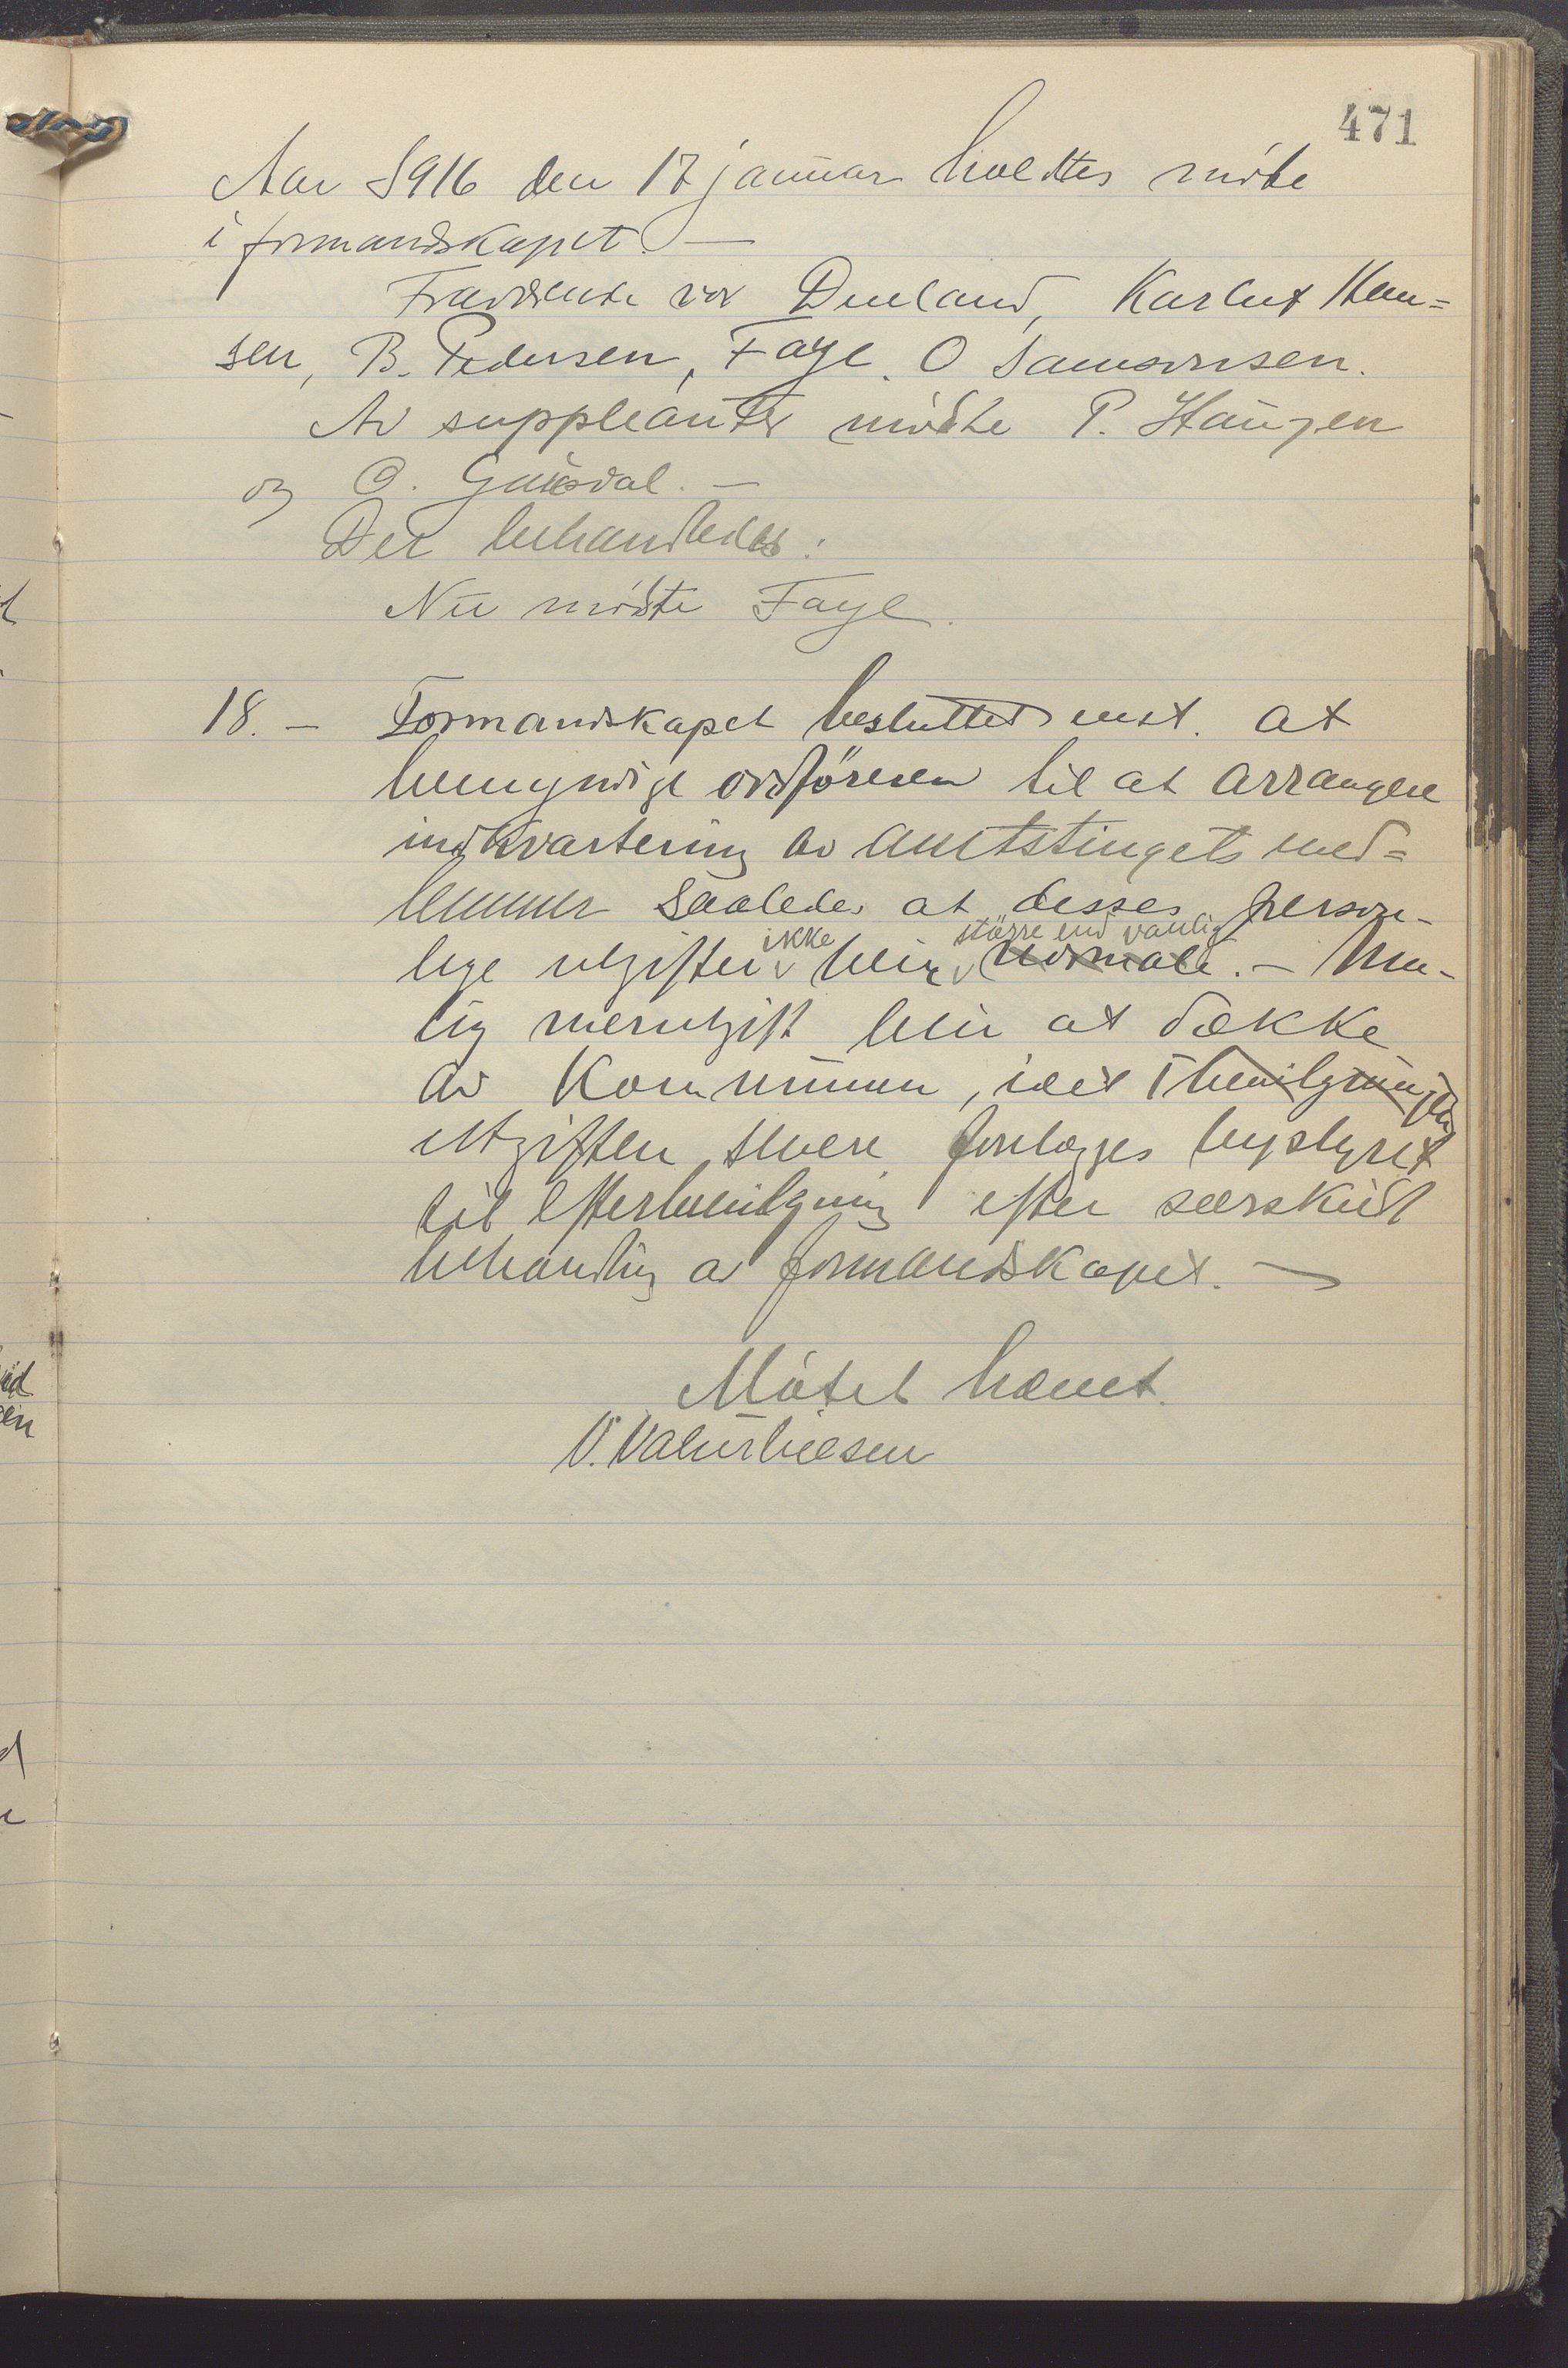 471
Aar 1916 den 17 januar holdtes møte
i formandskapet. —
Fraværende var Dueland, Karluf Han=
sen, B. Pedersen, Faye. O Samsonsen.
Av suppleanter mødte P. Haugen
og O. Gausdal. —
Der behandledes:
Nu mødte Faye.
18. — Formandskapet besluttet enst. at
bemyndige ordföreren til at arrangere
indkvartering av amtstingets med=
lemmer saaledes at disses person-
ikke større end vanlig
lige utgifter blir normale. — Mu-
lig merutgift blir at dække
av kommunen, idet bevilgningen
utgiften senere forelægges bystyret
til efterbevilgning efter særskildt
behandling av formandskapet. —
Møtet hævet.
V. Valentinsen